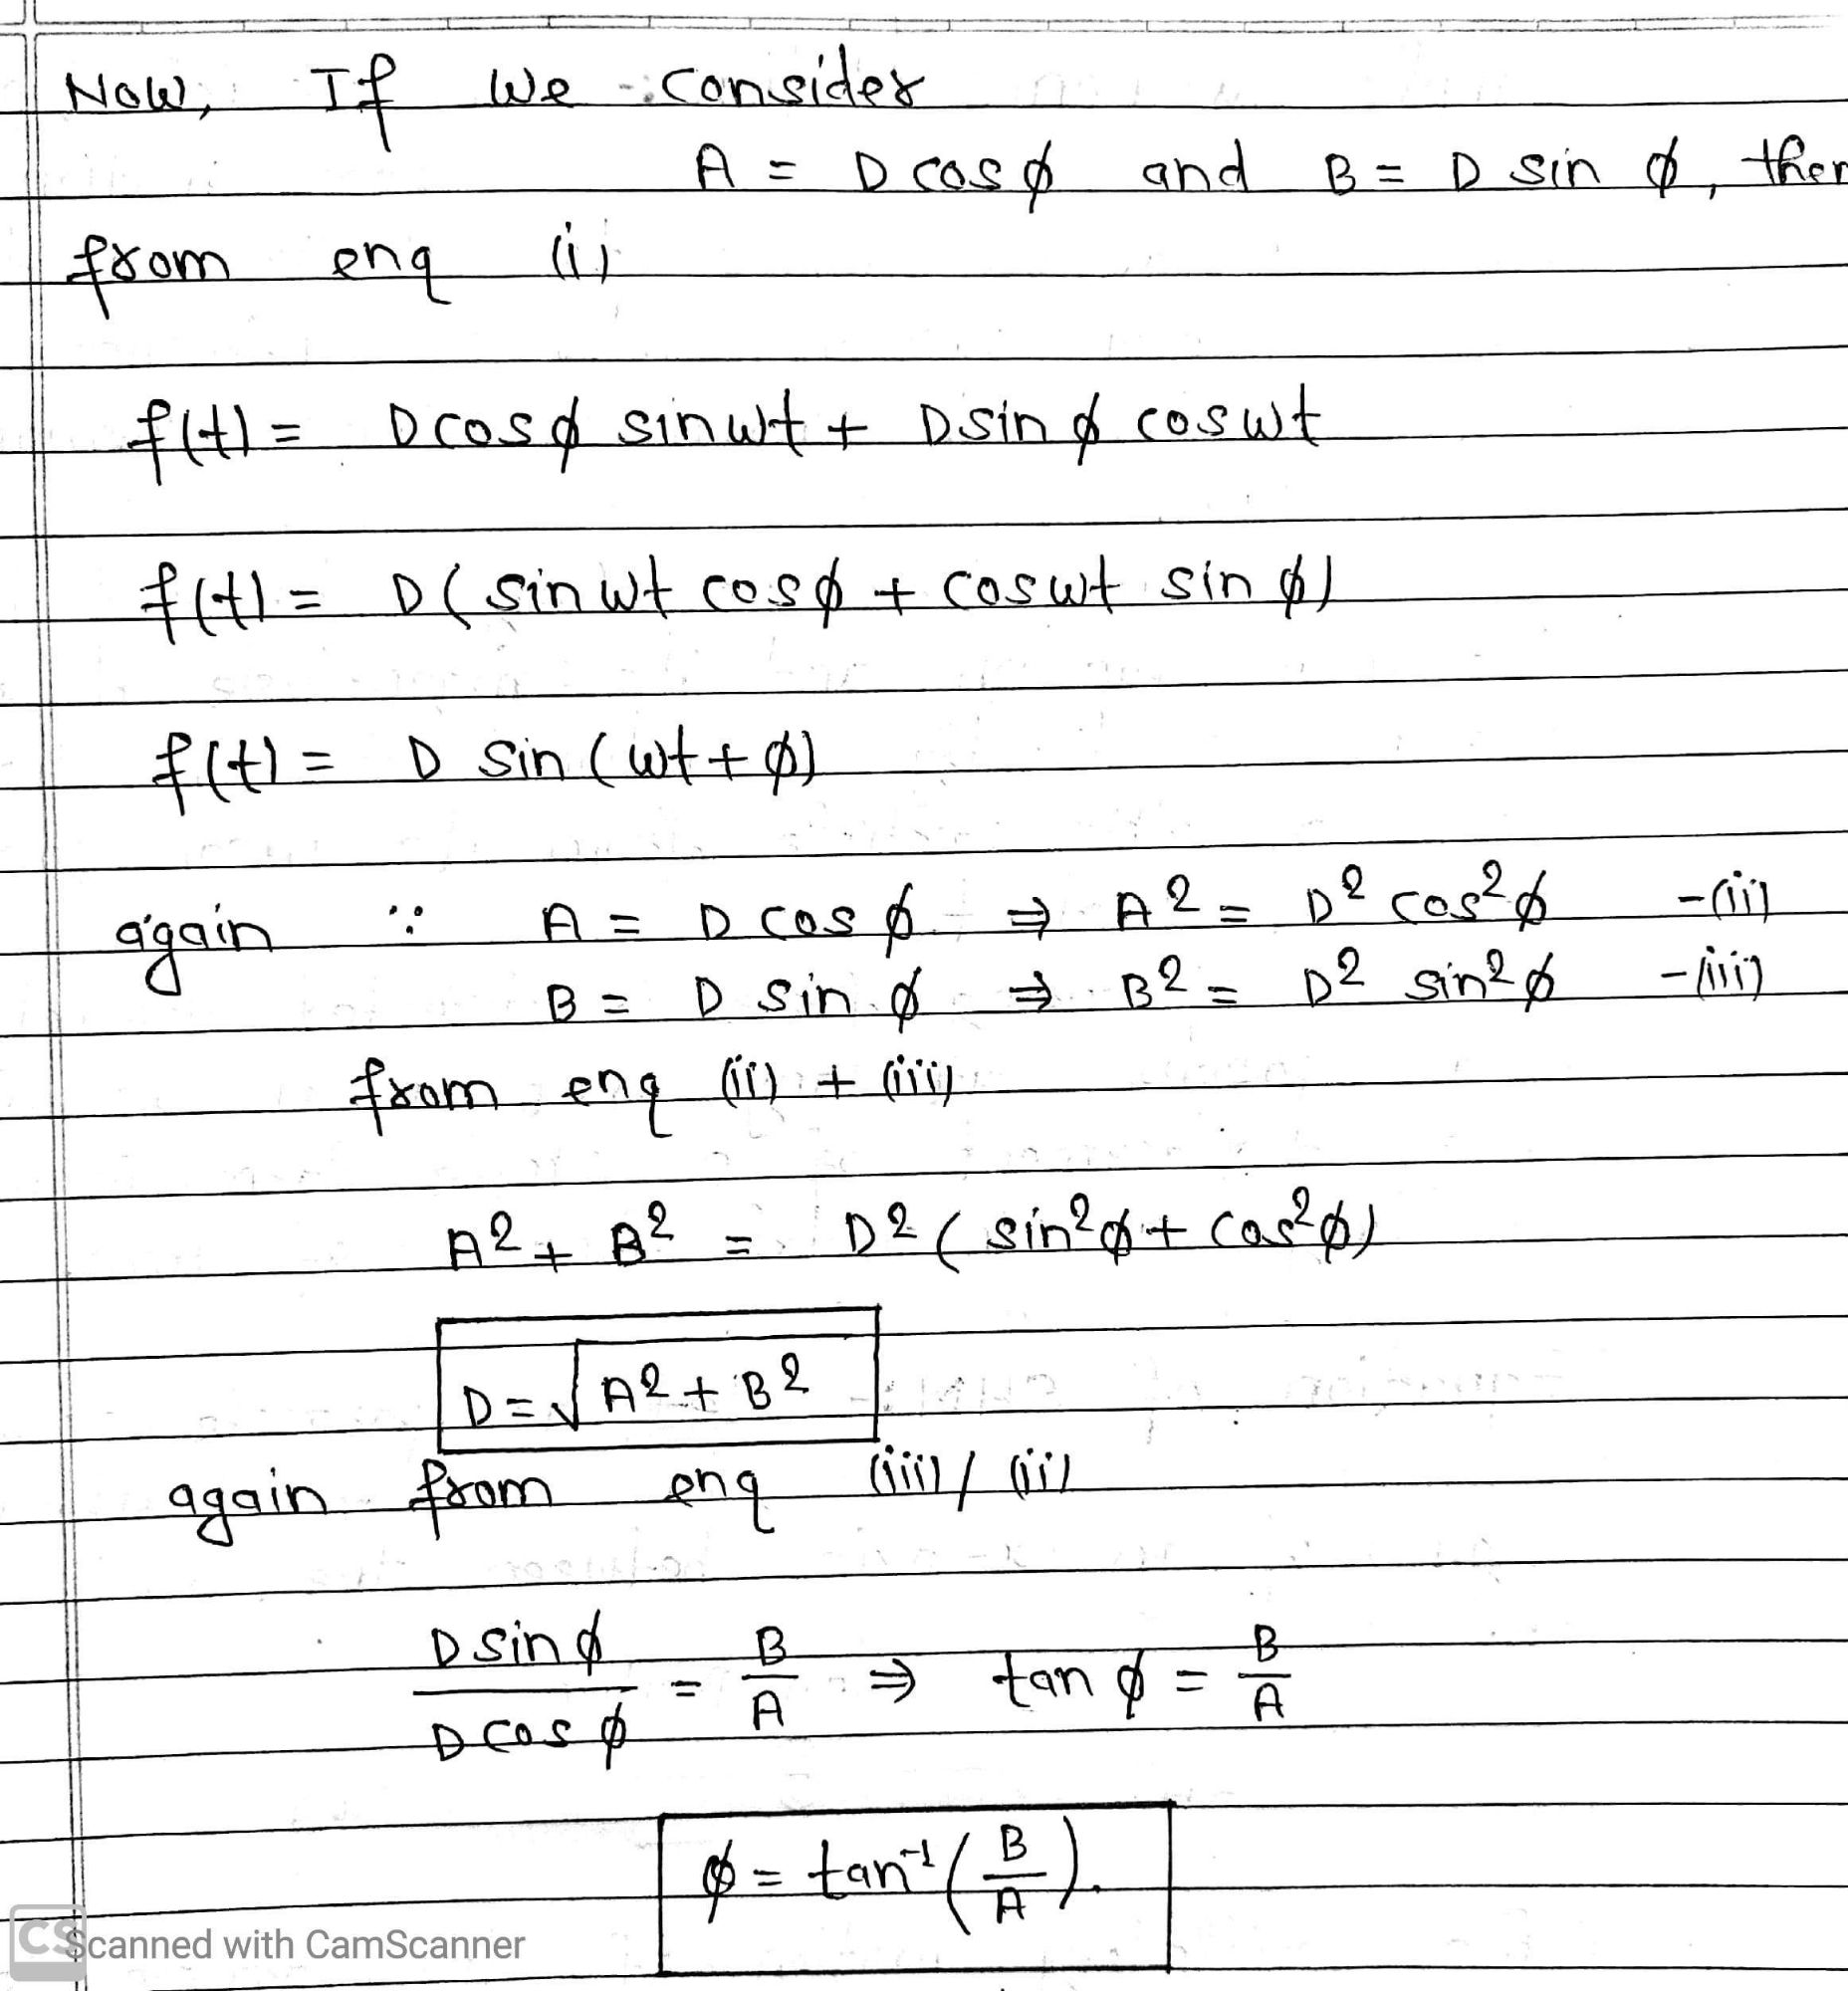 Now, If we consider
A = D cos ϕ and B = D sin ϕ, then
from enq (i)
f(t) = D cos ϕ sin wt + D sin ϕ cos wt
f(t) = D ( sin wt cos ϕ + cos wt sin ϕ)
f(t) = D sin (wt + ϕ)
again ∵ A = D cos ϕ ⇒ A² = D² cos² ϕ -(ii)
B = D sin ϕ ⇒ B² = D² sin² ϕ -(iii)
from enq (ii) + (iii)
A² + B² = D² ( sin² ϕ + cos² ϕ)
D = √A² + B²
again from enq (iii) / (ii)
D sin ϕ / D cos ϕ = B / A ⇒ tan ϕ = B / A
ϕ = tan⁻¹ ( B / A ).
CS Scanned with CamScanner